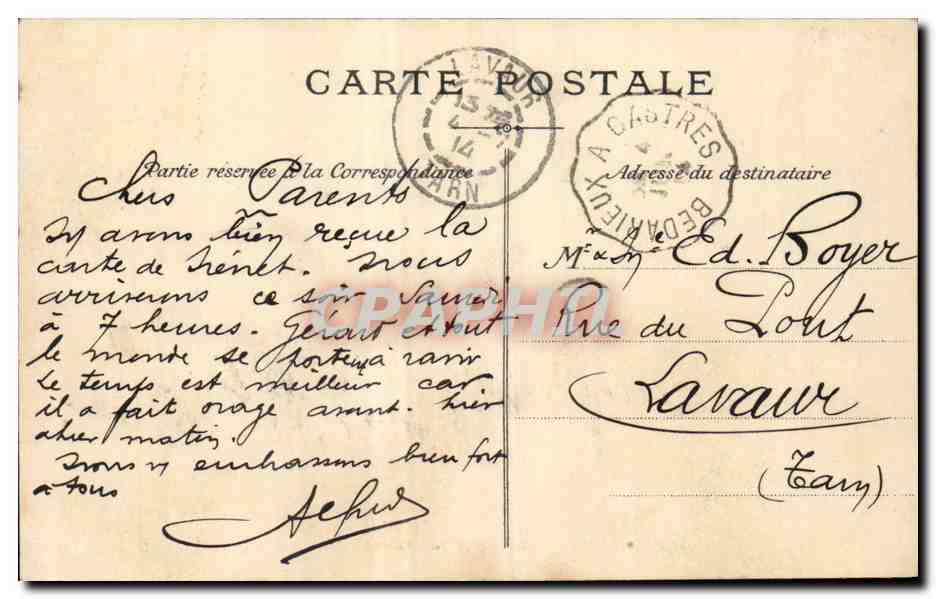 CARTE POSTALE
LAVAUR
13
4
14
TARN
BEDARIEUX A CASTRES
4
Partie réservée à la Correspondance
Adresse du destinataire
Chers Parents
avons bien reçue la
carte de . Nous
arriverons ce soir Samedi
à 7 heures. Gérard et tout
le monde se porte à ravir
Le temps est meilleur car
il a fait orage avant-hier
hier matin.
Nous embrassons bien fort
à tous
Alfred
Ed. Boyer
Rue du Pont
Lavaur
(Tarn)
CPAPHIL